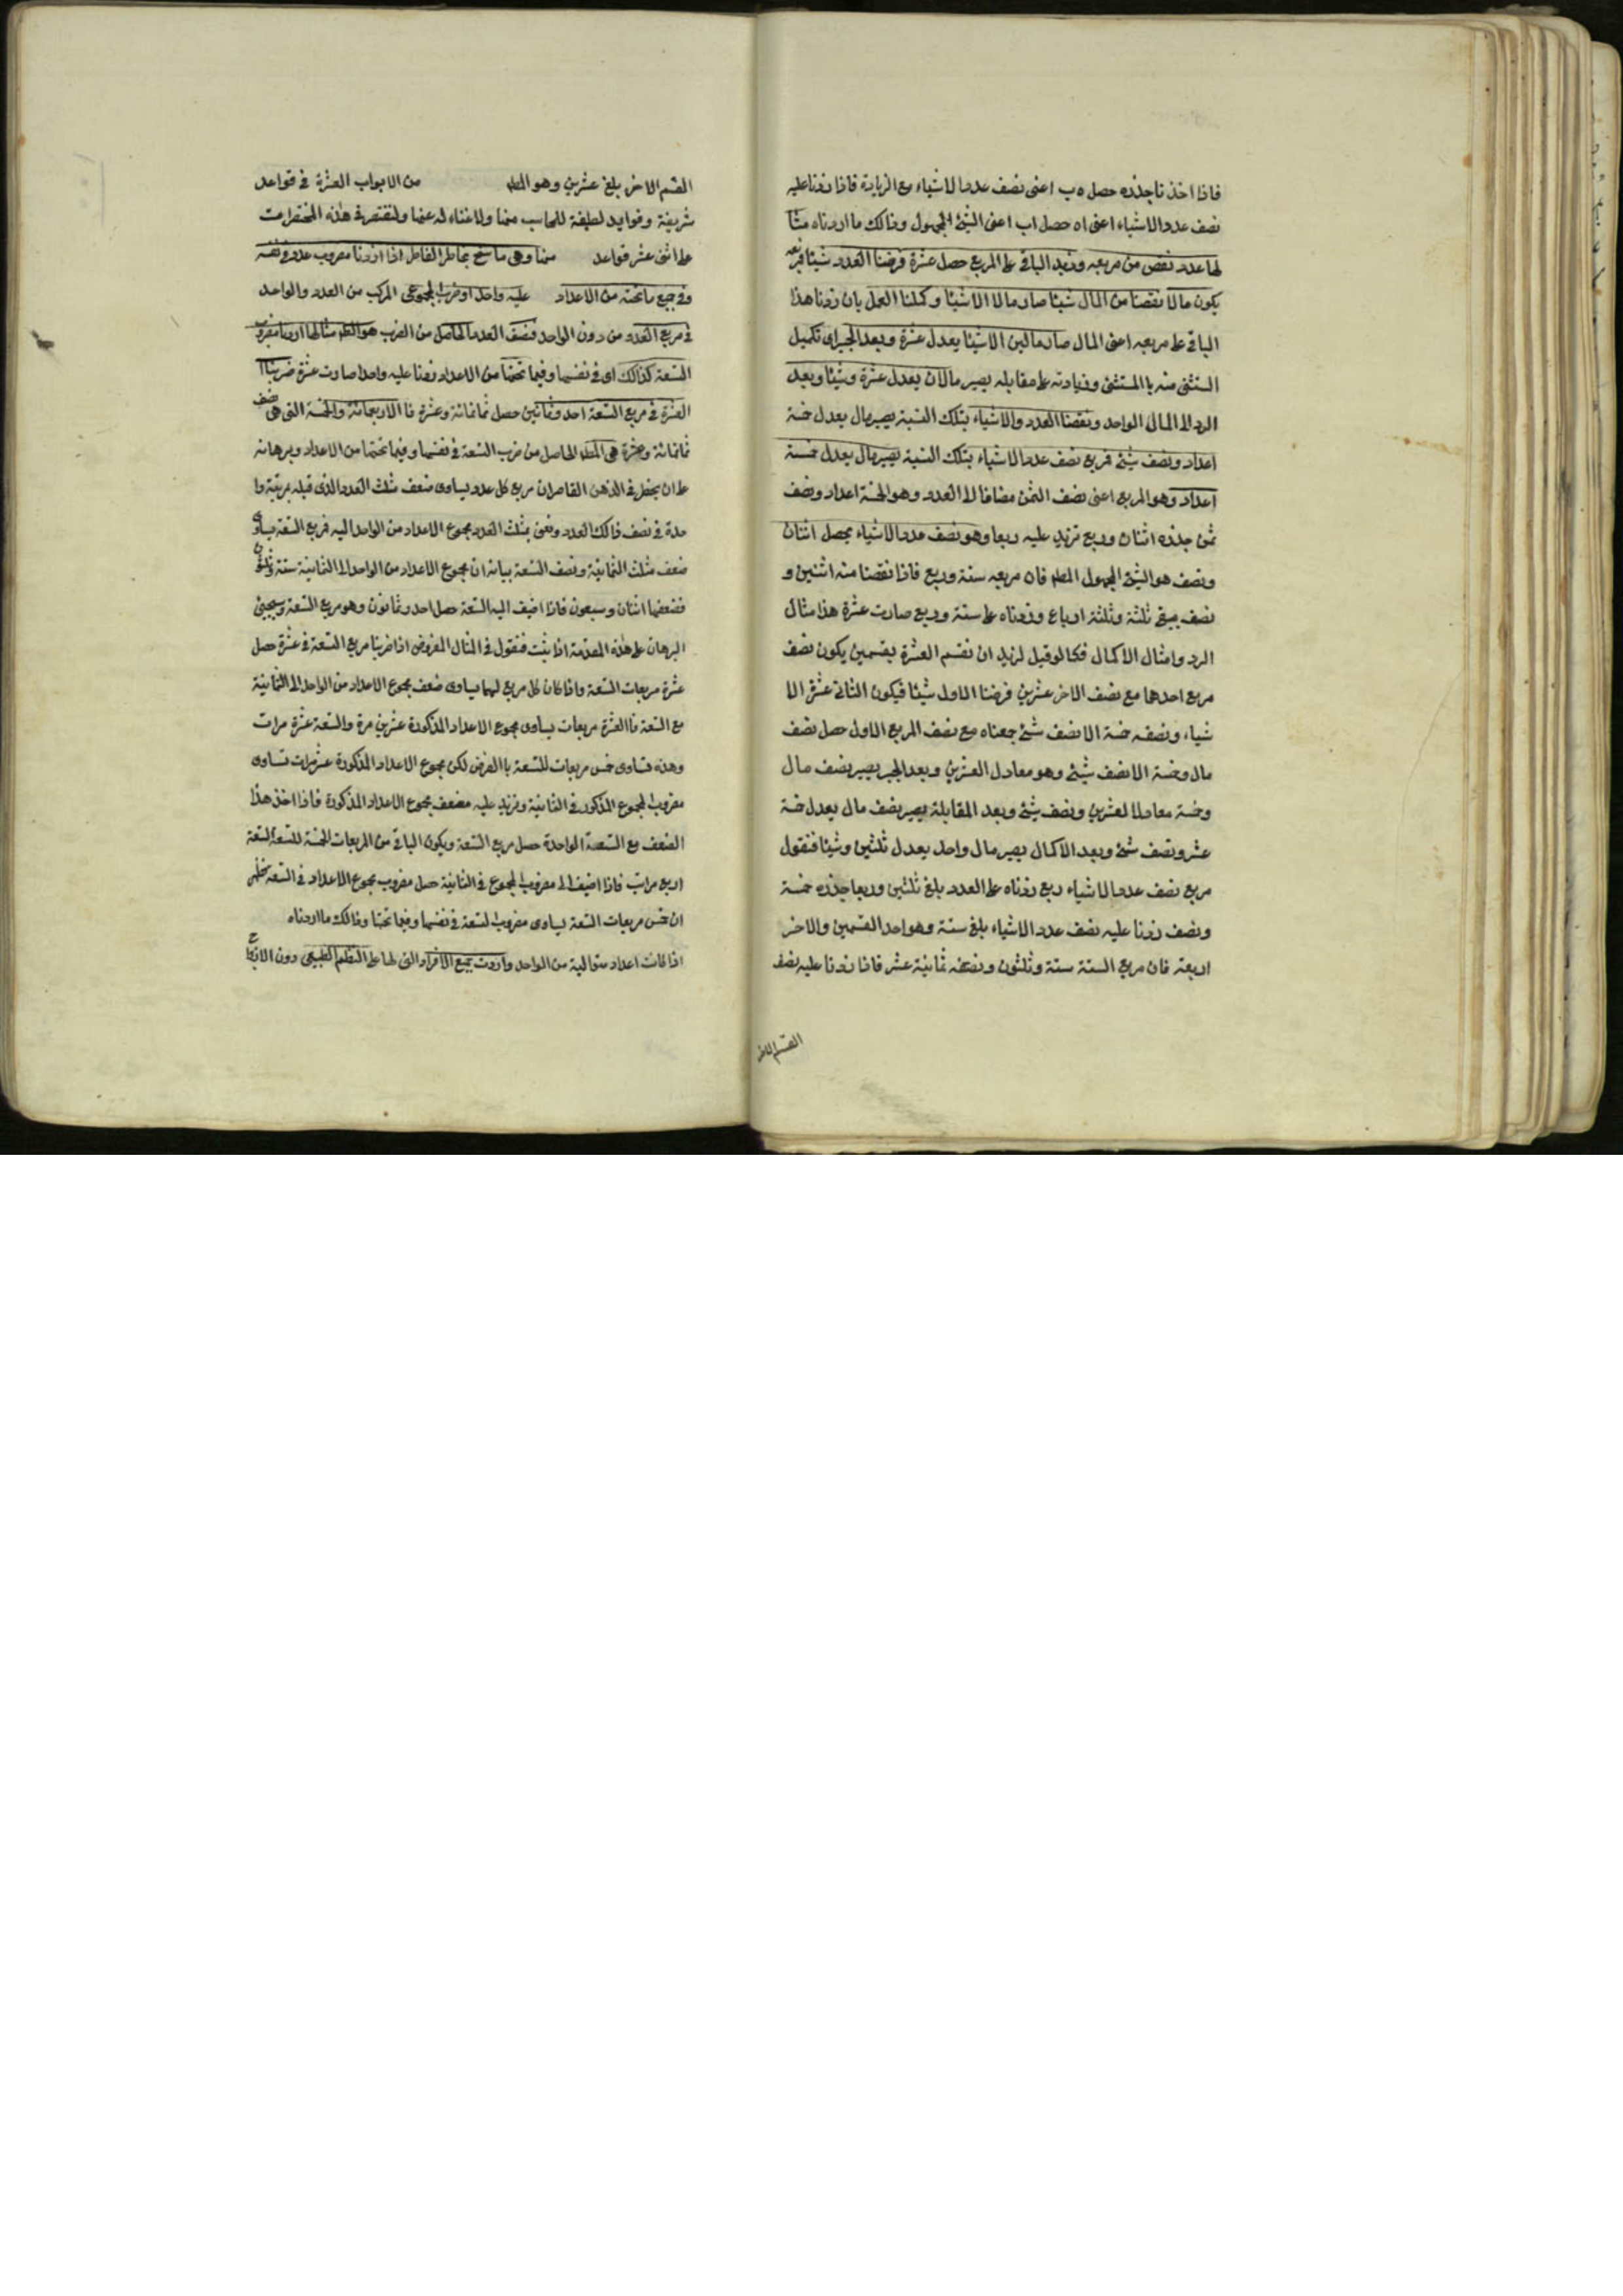 فاذا اخذنا جذره حصل ه ب اعنى نصف عدد الاشياء مع الزيادة فاذا زدنا عليه
نصف عدد الاشياء اعنى اه حصل اب اعنى الشئ المجهول وذالك ما اردناه مثا
لها عدد نقص من مربعه وزيد الباقى على المربع حصل عشرة فرضنا العدد شيئا فمربعه
يكون مالا نقصنا من المال شيئا صار مالا الا شيئا وكملنا العمل بان زدنا هذا
الباقى على مربعه اعنى المال صار مالين الا شيئا يعدل عشرة وبعد الجبر اى تكميل
المستثنى منه باالمستثنى وزيادته على مقابله يصير مالان يعدل عشرة وشيئا وبعد
الرد الى المال الواحد ونقصنا العدد والاشياء بتلك النسبة يصير مال يعدل خمسة
اعداد ونصف شئ فمربع نصف عدد الاشياء بتلك النسبة يصير مال يعدل خمسة
اعداد وهو المربع اعنى نصف الثمن مضافا الى العدد وهو الخمسة اعداد ونصف
ثمن جذره اثنان وربع تزيد عليه ربعا وهو نصف عدد الاشياء يحصل اثنان
ونصف هو الشئ المجهول المط فان مربعه ستة وربع فاذا نقصنا منه اثنين و
نصف يبقى ثلثة وثلثة ارباع وزدناه على ستة وربع صارت عشرة هذا مثال
الرد وامثال الاكمال فكما لو قيل لزيد ان نقسم العشرة بقسمين يكون نصف
مربع احدهما مع نصف الاخر عشرين فرضنا الاول شيئا فيكون الثانى عشرة الا
شياء ونصفه خمسة الا نصف شئ جمعناه مع نصف المربع الاول حصل نصف
مال وخمسة الا نصف شئ وهو معادل العشرين وبعد الجبر يصير نصف مال
وخمسة معادلا لعشرين ونصف شئ وبعد المقابلة يصير نصف مال يعدل خمسة
عشر ونصف شئ وبعد الاكمال يصير مال واحد يعدل ثلثين وشيئا فنقول
مربع نصف عدد الاشياء ربع زدناه على العدد بلغ ثلثين وربعا جذره خمسة
ونصف زدنا عليه نصف عدد الاشياء بلغ ستة وهو احد القسمين والاخر
اربعة فان مربع الستة ستة وثلثون ونصفه ثمانية عشر فاذا زدنا عليه نصف
القسم الاخر
القسم الاخر بلغ عشرين وهو المط من الابواب العشرة فى قواعد
شريفة وفوايد لطيفة للحاسب منها ولا غناء له عنها ولنقتصر فى هذه المختصرات
على اثنى عشر قواعد منها وهى ما سنح بخاطر الفاطر اذا اردنا مضروب عدد فى نفسه
وفى جميع ما تحته من الاعداد عليه واحدا وضرب المجموعى المركب من العدد والواحد
فى مربع العدد من دون الواحد فنصف العدد الحاصل من الضرب هو المط مثالها اردنا مضروب
التسعة كذالك اى فى نفسها وفيما تحتها من الاعداد زدنا عليه واحدا صارت عشرة ضربنا
العشرة فى مربع التسعة احد وثمانين حصل ثمانمائة وعشرة فا الاربعمائة والخمسة التى هى نصف
ثمانمائة وعشرة هى المط الحاصل من ضرب التسعة فى نفسها وفيما تحتها من الاعداد وبرهانه
على ان يحضل فى الذهن القاصر ان مربع كل عدد يساوى ضعف مثلث العدد الذى قبله بمرتبة وا
حدة فى نصف ذالك العدد ونعنى بمثلث العدد مجموع الاعداد من الواحد اليه فمربع التسعة يساوى
ضعف مثلث الثمانية ونصف التسعة بيانه ان مجموع الاعداد من الواحد الى الثمانية ستة وثلثون
فضعفها اثنان وسبعون فاذا اضيف اليه التسعة حصل احد وثمانون وهو مربع التسعة وسيجيئ
البرهان على هذه المقدمة اذا بينت فنقول فى المثال المفروض اذا ضربنا مربع التسعة فى عشرة حصل
عشرة مربعات التسعة واذا كان كل مربع لهما يساوى ضعف مجموع الاعداد من الواحد الى الثمانية
مع التسعة فا العشرة مربعات يساوى مجموع الاعداد المذكورة عشرين مرة والتسعة عشرة مرات
وهذه تساوى خمس مربعات للتسعة باالفرض لكن مجموع الاعداد المذكورة عشر مرات تساوى
مضروب المجموع المذكور فى الثمانية ونزيد عليه مضعف مجموع الاعداد المذكورة فاذا اخذ هذا
الضعف مع التسعة الواحدة حصل مربع التسعة ويكون الباقى من المربعات الخمسة للتسعة التسعة
اربع مرات فاذا اضيف الى مضروب المجموع فى الثمانية حصل مضروب مجموع الاعداد فى التسعة فظهر
ان خمس مربعات التسعة يساوى مضروب التسعة فى نفسها وفيما تحتها وذالك ما اردناه
اذا كانت اعداد متوالية من الواحد واردت جميع الافراد التى لها على النظم الطبيعى دون الازواج